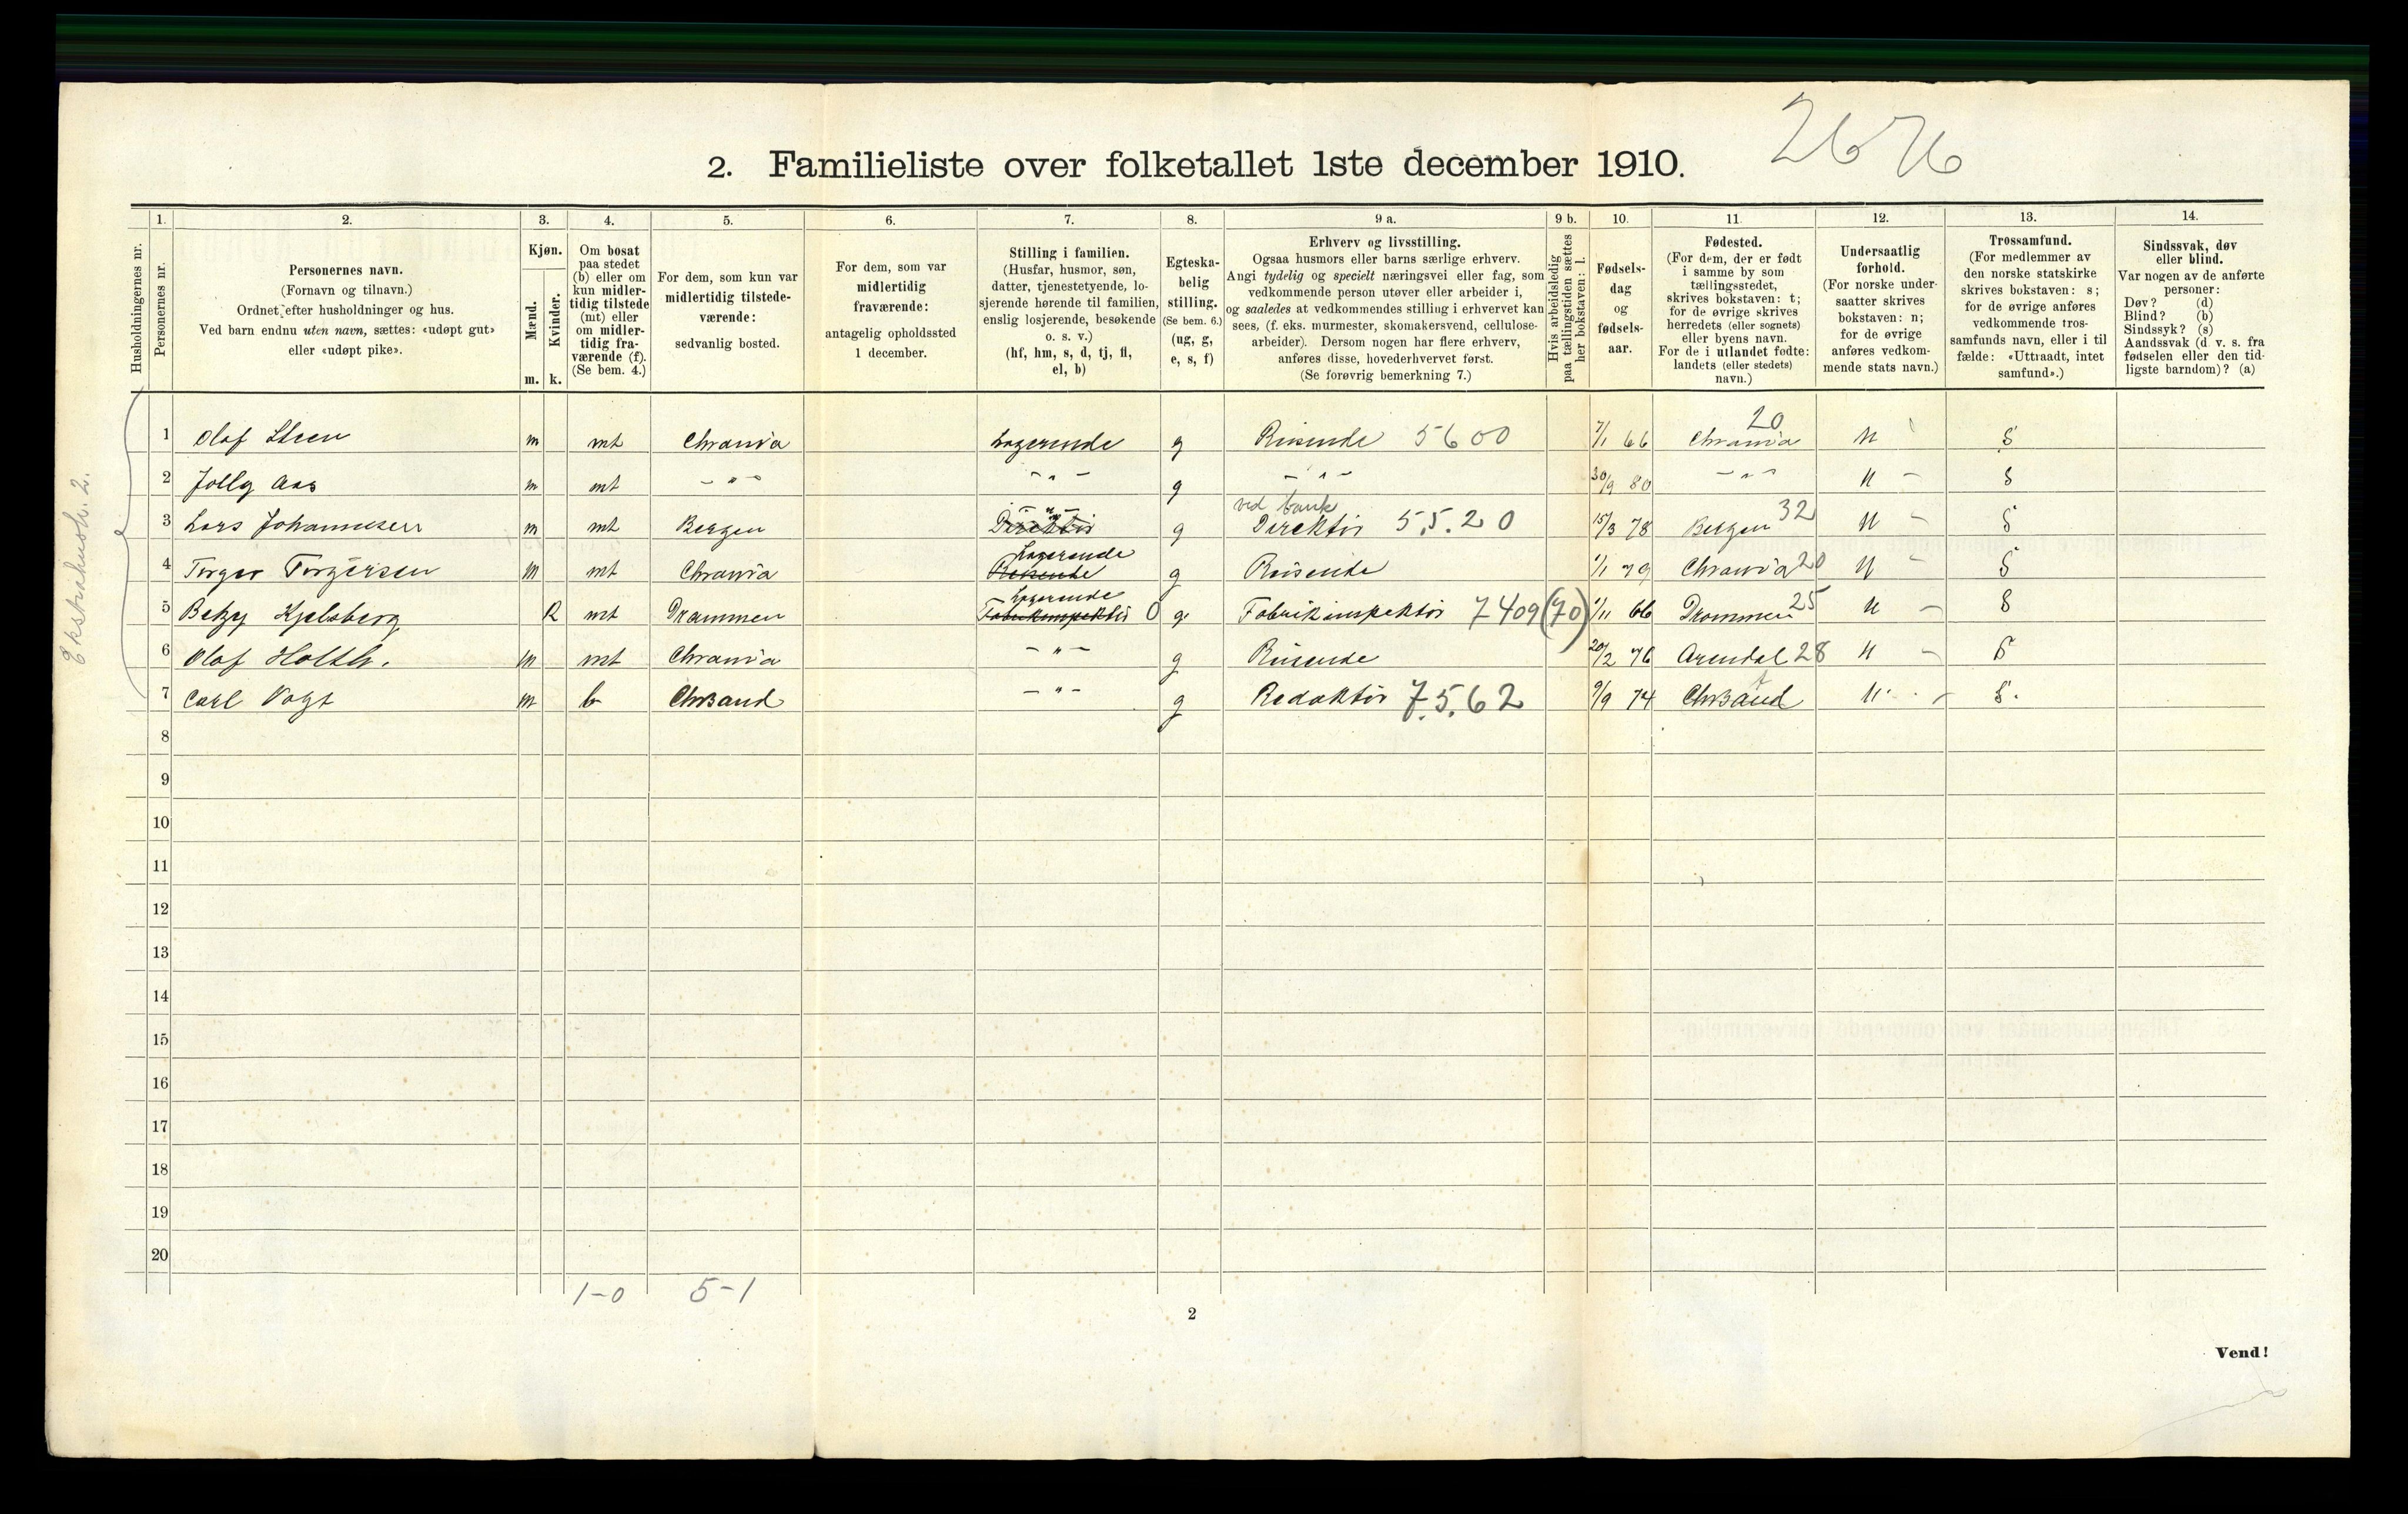 2676
2. Familieliste over folketallet 1ste december 1910.
Husholdningernes nr.
1.
Personernes nr.
2.
Personernes navn.
(Fornavn og tilnavn.)
Ordnet efter husholdninger og hus.
Ved barn endnu uten navn, sættes: «udøpt gut»
eller «udøpt pike».
3.
Kjøn.
Mænd.
Kvinder.
m. k.
4.
Om bosat
paa stedet
(b) eller om
kun midler-
tidig tilstede
(mt) eller
om midler-
tidig fra-
værende (f).
(Se bem. 4.)
5.
For dem, som kun var
midlertidig tilstede-
værende:
sedvanlig bosted.
6.
For dem, som var
midlertidig
fraværende:
antagelig opholdssted
1 december.
7.
Stilling i familien.
(Husfar, husmor, søn,
datter, tjenestetyende, lo-
sjerende hørende til familien,
enslig losjerende, besøkende
o. s. v.)
(hf, hm, s, d, tj, fl,
el, b)
8.
Egteska-
belig
stilling.
(Se bem. 6.)
(ug, g,
e, s, f)
9 a.
Erhverv og livsstilling.
Ogsaa husmors eller barns særlige erhverv.
Angi tydelig og specielt næringsvei eller fag, som
vedkommende person utøver eller arbeider i,
og saaledes at vedkommendes stilling i erhvervet kan
sees, (f. eks. murmester, skomakersvend, cellulose-
arbeider). Dersom nogen har flere erhverv,
anføres disse, hovederhvervet først.
(Se forøvrig bemerkning 7.)
9 b.
Hvis arbeidsledig
paa tællingstiden sættes
her bokstaven: l.
10.
Fødsels-
dag
og
fødsels-
aar.
11.
Fødested.
(For dem, der er født
i samme by som
tællingsstedet,
skrives bokstaven: t;
for de øvrige skrives
herredets (eller sognets)
eller byens navn.
For de i utlandet fødte:
landets (eller stedets)
navn.)
12.
Undersaatlig
forhold.
(For norske under-
saatter skrives
bokstaven: n;
for de øvrige
anføres vedkom-
mende stats navn.)
13.
Trossamfund.
(For medlemmer av
den norske statskirke
skrives bokstaven: s;
for de øvrige anføres
vedkommende tros-
samfunds navn, eller i til
fælde: «Uttraadt, intet
samfund».)
14.
Sindssvak, døv
eller blind.
Var nogen av de anførte
personer:
Døv? (d)
Blind? (b)
Sindssyk? (s)
Aandssvak (d. v. s. fra
fødselen eller den tid-
ligste barndom)? (a)
Ekstrahush. 2.
1 Olaf Steen m mt Chrania Logerende g Reisende 5600 7/1 66 Chrania 20 n s
2 Jolly Aas m mt - " - - " - g - " - 30/9 80 - " - n - s
3 Lars Johannesen m mt Bergen Direktør - " - g ved bank Direktør 5.5.20 15/3 78 Bergen 32 n - s
4 Torger Torgersen m mt Chrania Reisende Logerende g Reisende 1/1 79 Chrania 20 n - s
5 Betzy Kjelsberg k mt Drammen Fabrikinspektør Logerende 0 g Fabrikinspektør 7409 (70) 1/11 66 Drammen 25 n - s
6 Olaf Holth. m mt Chrania - " - g Reisende 20/2 76 Arendal 28 n - s
7 Carl Vogt m b ChrSand - " - g Redaktør 7.5.62 9/9 74 ChrSand t n - s.
8
9
10
11
12
13
14
15
16
17
18
19
20
1-0 5-1
2
Vend!